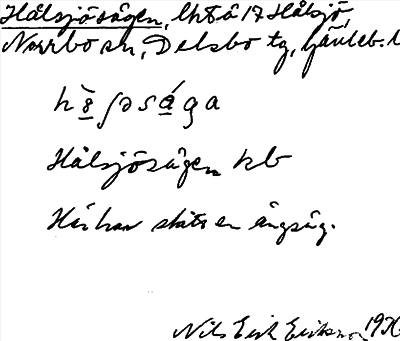 Hålsjösågen, lht å 17 Hålsjö,
Norrbo sn, Delsbo tg, Gävleb. l
Hålsjösågen kb
Här har stått en ångsåg.
Nils Erik Eriksson 1936